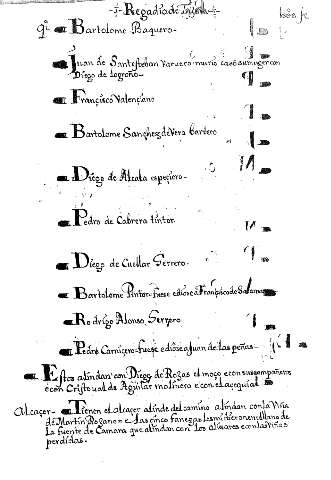 Regadio de
Bartolome Baquero
Juan de Santesteban murio casó su muger con
Diego de logroño
Francisco Valençiano
Bartolome Sanchez de Vera bartero
Diego de Alcala espeçiero
Pedro de Cabrera tintor
Diego de Cuellar Serrero
Bartolome Pintor fuese e diose a Françisco de
Rodrigo Alonso Serrero
Pedro Carniçero fuese e diose a Juan de las peñas
Estos alindan con Diego de Rozas el moço e con sus compañeros
e con Cristoval de Aguilar molinero e con el açequia
Alcaçer Tienen el alcaçer alinde del camino alindan con la Viña
de Martin e las cinco fanegas les midieron en el llano de
la fuente de Camara que alindan con los e con las Viñas
perdidas.